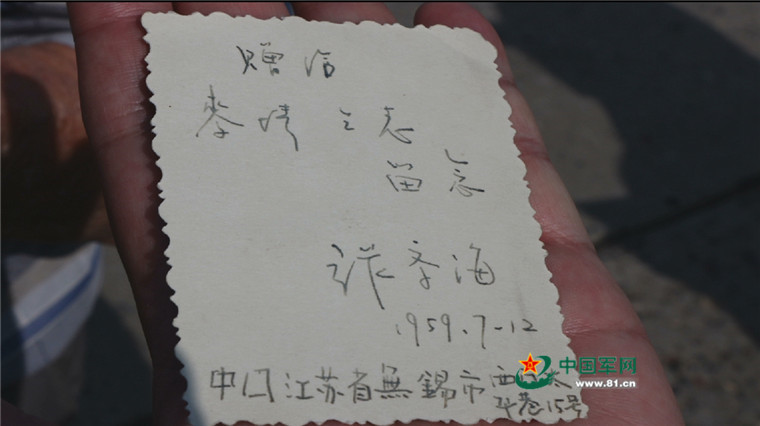 赠给
李晴全志
留念
张孝海
1959.7-12
中囗江苏省無錫市西
平巷15号
中国军网
www.81.cn